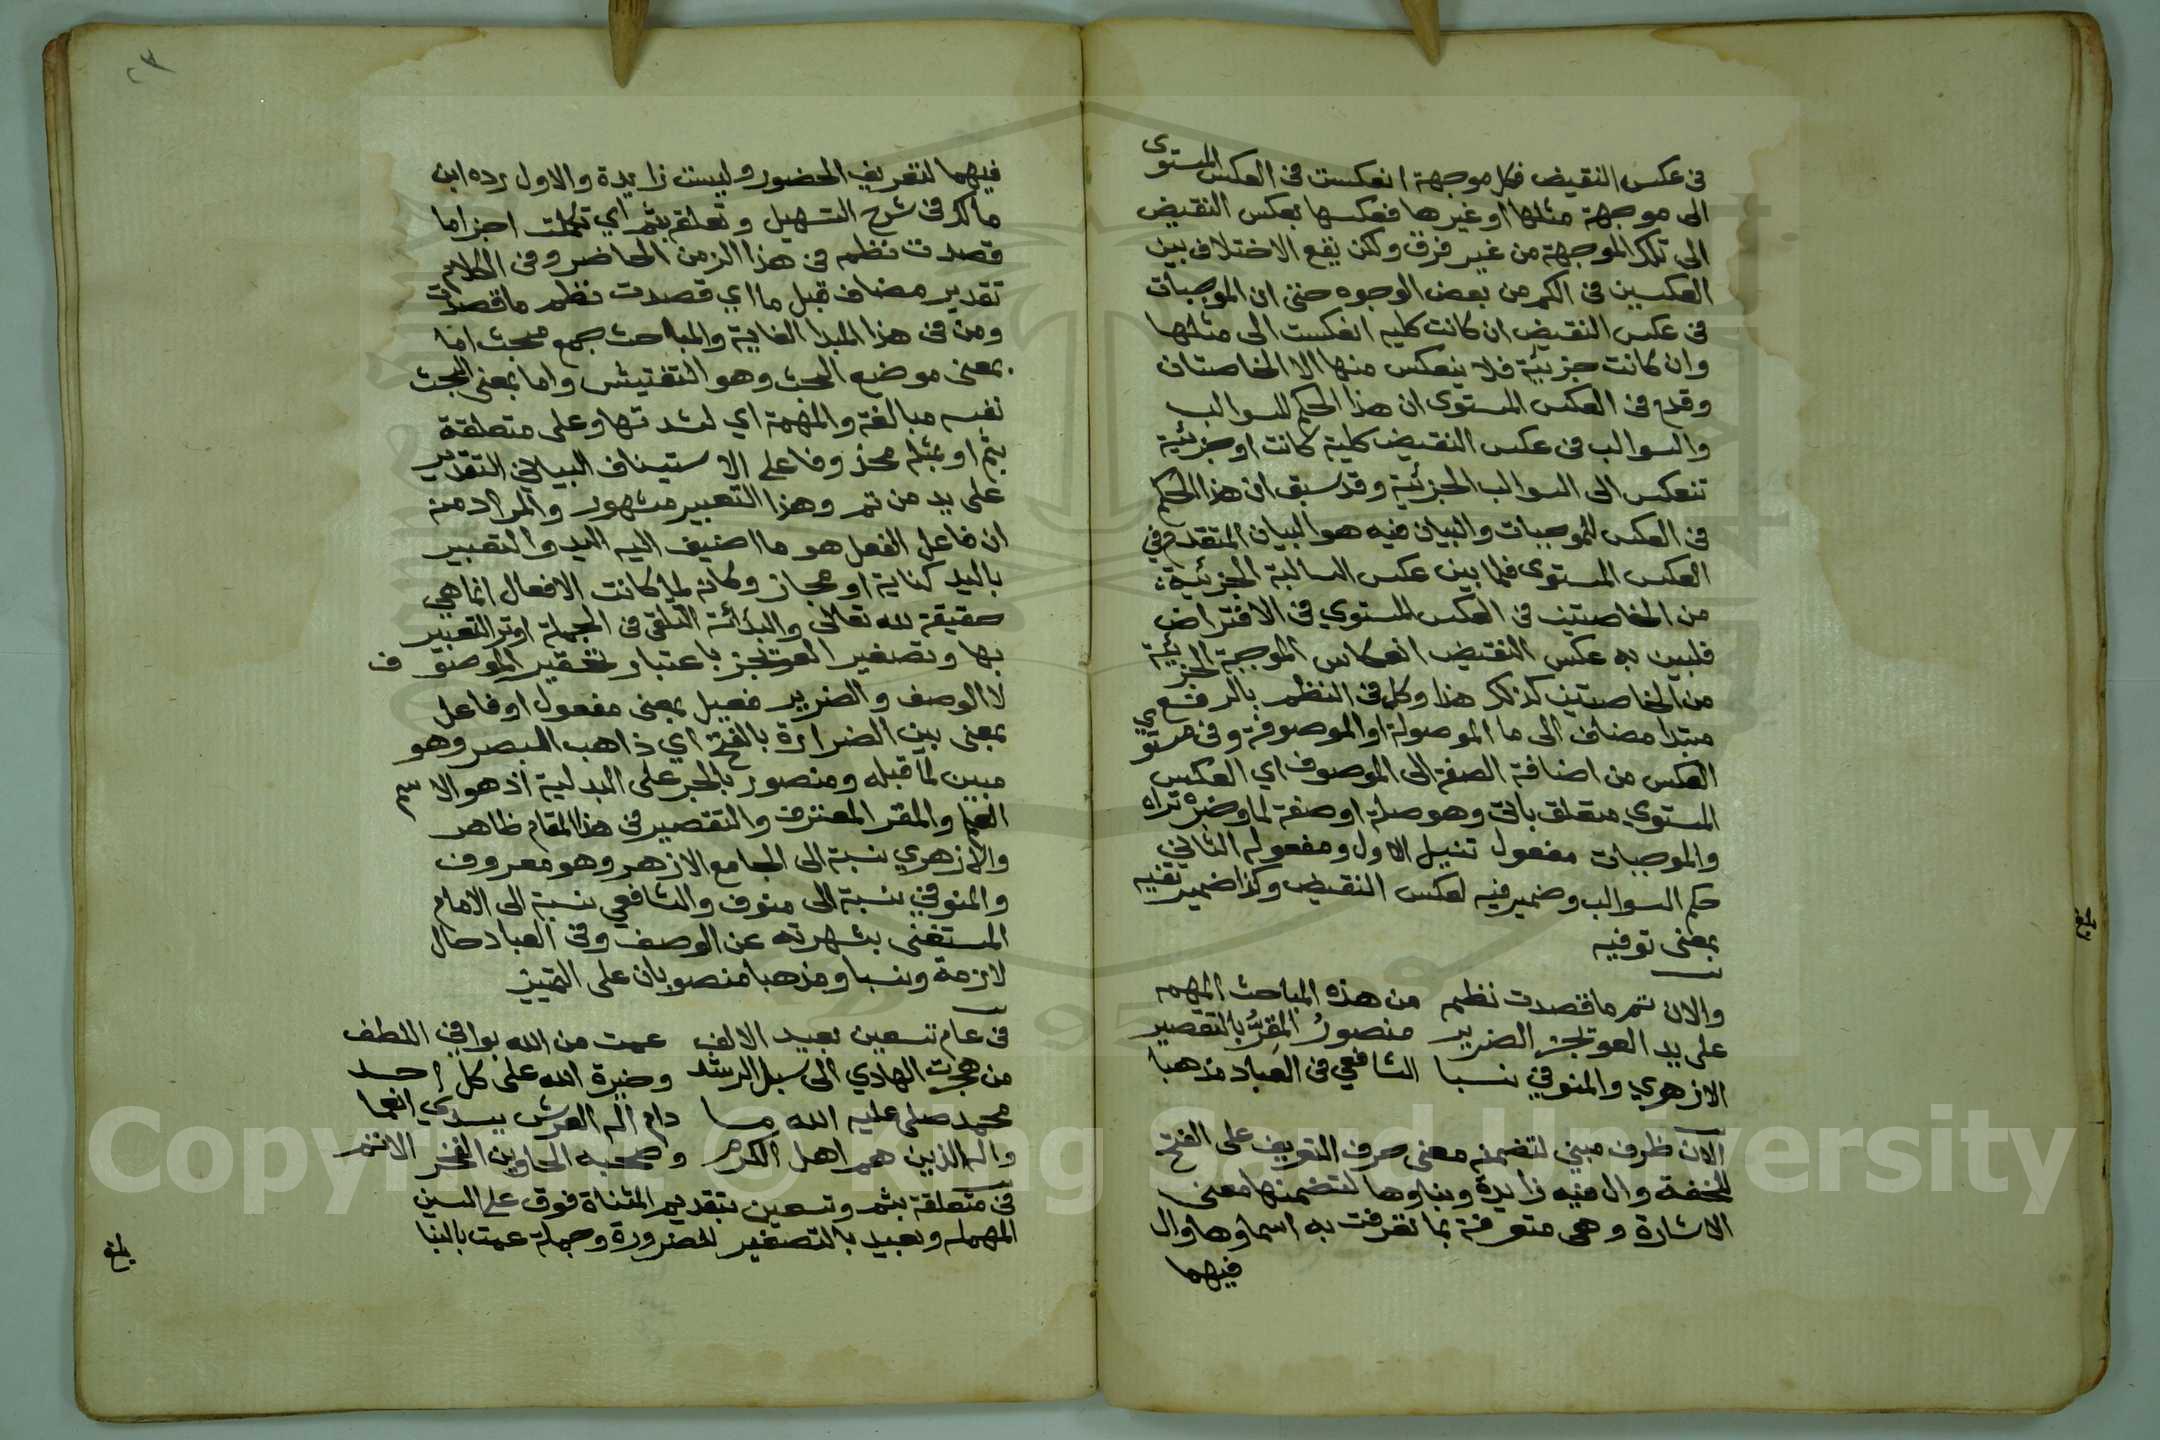 في عكس النقيض فكل موجهة انعكست في العكس المستوى
الى موجهة مثلها او غيرها فعكسها بعكس النقيض
الى تلك الموجهة من غير فرق ولكن يقع الاختلاف بين
العكسين في الكم من بعض الوجوه حتى ان الموجبات
في عكس النقيض ان كانت كليه انعكست الى مثلها
وان كانت جزئية فلا ينعكس منها الا الخاصتان
وقدم في العكس المستوى ان هذا الحكم للسوالب
والسوالب في عكس النقيض كلية كانت او جزئية
تنعكس الى السوالب الجزئية وقد سبق ان هذا الحكم
في العكس للموجبات والبيان فيه هو البيان المتقدم في
العكس المستوى فلما بين عكس السالبة الجزئية
من الخاصتين في العكس المستوي في الافتراض
فليبين به عكس النقيض انعكاس الموجبة الجزئية
من الخاصتين كذلك هذا وكل في النظم بالرفع
مبتدا مضاف الى ما الموصولة او الموصوفة وفي مستوي
العكس من اضافة الصفة الى الموصوف اي العكس
المستوي متعلق باتي وهو صلة او صفة لما وضمره تراه
والموجبات مفعول تنيل الاول ومفعوله الثاني
حكم السوالب وضمير فيه لعكس النقيض وكذا ضمير تفيه
بمعنى توفيه
والان تم ما قصدت نظم من هذه المباحث المهمه
على يد العويجز الضرير منصورُ المقرُّ بالتقصير
الازهري والمنوفي نسبا الشافعي في العباد مذهبا
الان ظرف مبني لتضمنه معنى حرف التعريف على الفتح
للخفة وال فيه زايدة وبناوها لتضمنها معنى
الاشارة وهي متعرفة بما تعرفت به اسماوها وال
فيهما
بلغ
٢٣
فيهما لتعريف الحضور وليست زايدة والاول رده ابن
مالك في شرح التسهيل وتعلقه بتم اي تكملت اجزاما
قصدت نظمه في هذا الزمن الحاضر وفي الكلام
تقدير مضاف قبل ما اي قصدت نظم ما قصدت
ومن في هذا المبدا الغاية والمباحث جمع مبحث اما
بمعنى موضع البحث وهو التفتيش واما بمعنى البحث
نفسه مبالغة والمهمة اي لشدتها وعلى متعلقة
بتم او بمثله محذوفا على الاستيناف البياني التقدير
على يد من تم وهذا التعبير مشهور والمراد منه
ان فاعل الفعل هو ما اضيف اليه اليد والتعبير
باليد كناية او مجاز وكانه لما كانت الافعال انما هي
حقيقة لله تعالى واليد الة التلقي في الجملة اوثر التعبير
بها وتصغير العويجز باعتبار تحقير الموصوف
لا الوصف والضرير فعيل بمعنى مفعول او فاعل
بمعنى بين الضرارة بالفتح اي ذاهب البصر وهو
مبين لما قبله ومنصور بالجر على البدلية اذ هو الاسم
العلم والمقر المعترف والتقصير في هذا المقام ظاهر
والازهري نسبة الى الجامع الازهر وهو معروف
والمنوفي نسبة الى منوف والشافعي نسبة الى الامام
المستغنى بشهرته عن الوصف وفي العباد حال
لازمة ونسبا ومذهبا منصوبان على التمييز
في عام تسعين بعيد الالف عمت من الله بوافي اللطف
من هجرت الهادي الى سبل الرشد وخيرة الله على كل احد
محمد صلى عليه الله ما دام اله العرش يسدي انعما
واله الذين هم اهل الكرم وصحبه الحاوين الفخر الاتم
في متعلقة بتم وتسعين بتقديم المثناة فوق على السين
المهملة وبعيد بالتصغير للضرورة وجملة عمت بالبنا
بلغ
Copyright © King Saud University